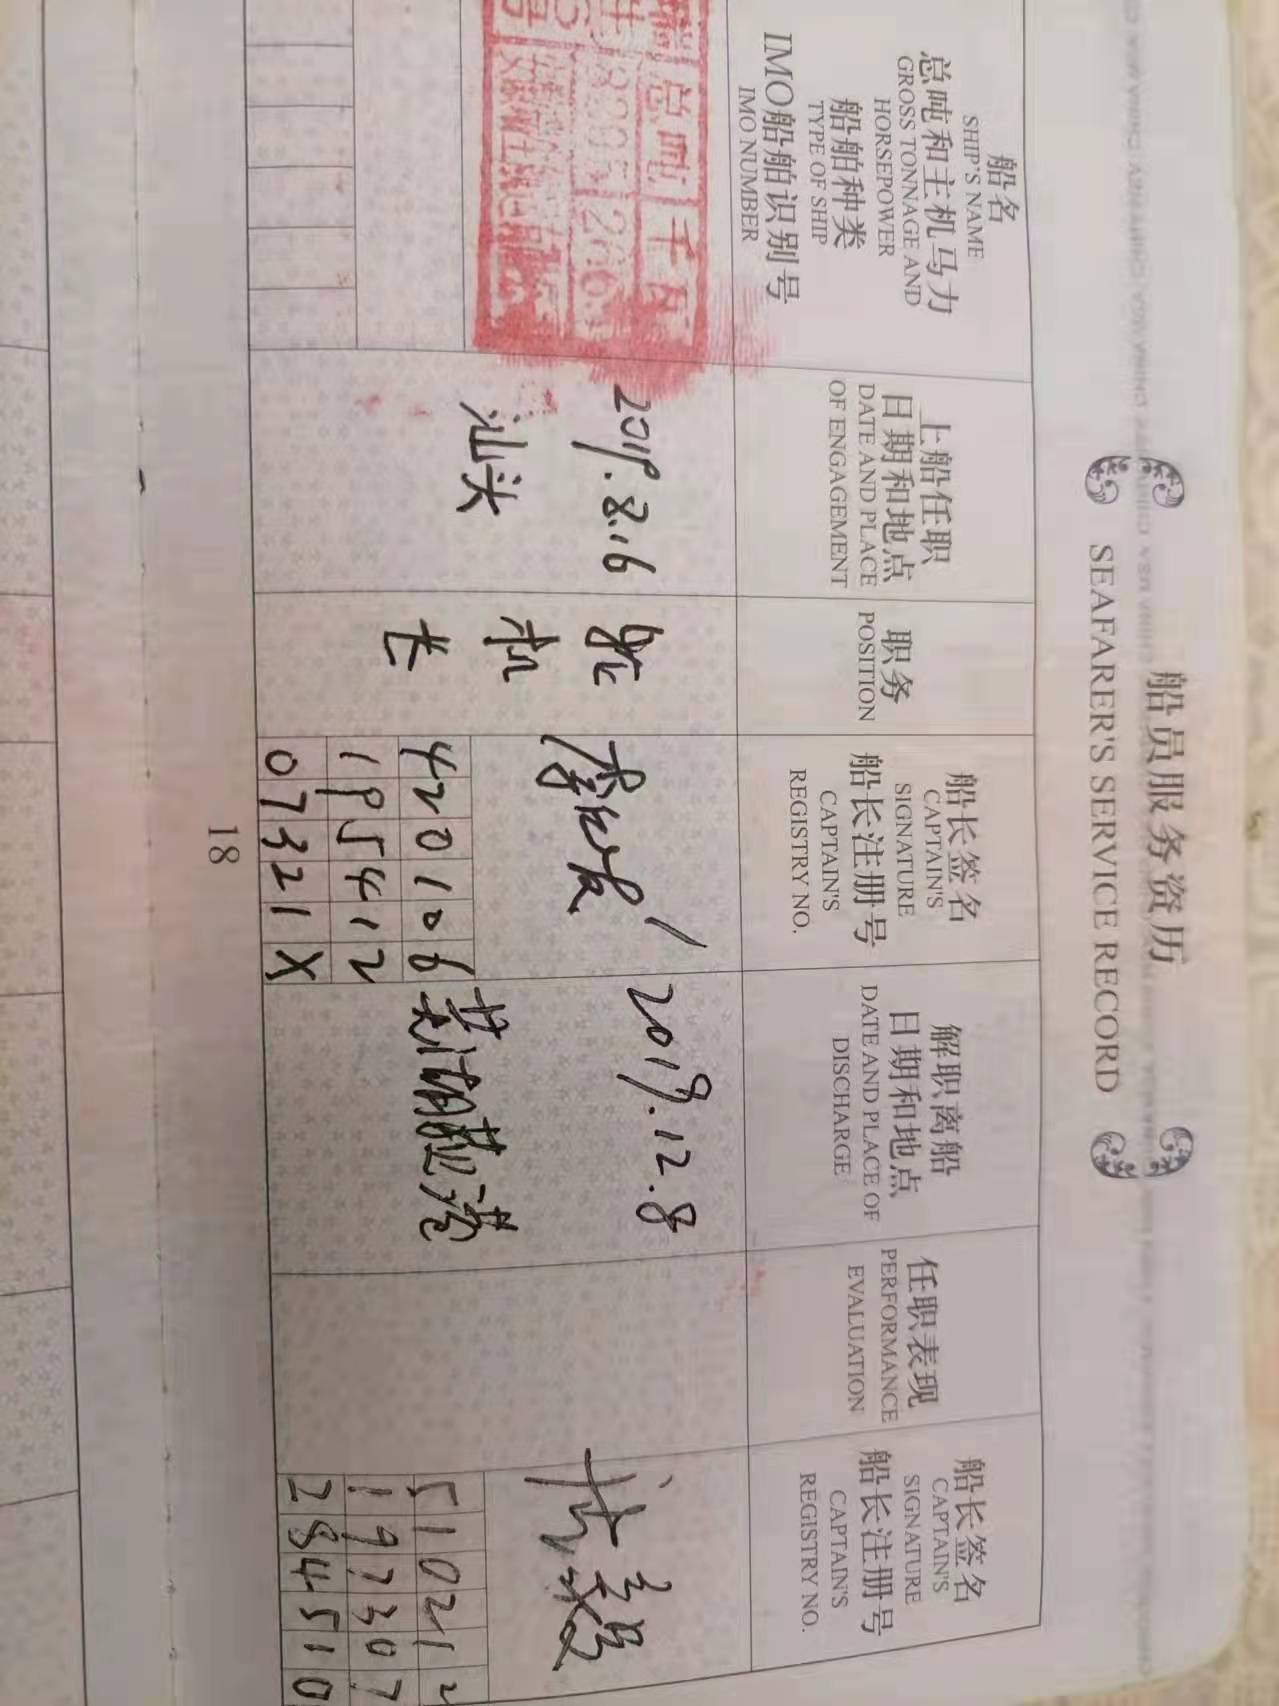 船员服务资历
SEAFARER'S SERVICE RECORD
船名
SHIP'S NAME
总吨和主机马力
GROSS TONNAGE AND
HORSEPOWER
船舶种类
TYPE OF SHIP
IMO船舶识别号
IMO NUMBER
上船任职
日期和地点
DATE AND PLACE
OF ENGAGEMENT
职务
POSITION
船长签名
CAPTAIN'S
SIGNATURE
船长注册号
CAPTAIN'S
REGISTRY NO.
解职离船
日期和地点
DATE AND PLACE OF
DISCHARGE
任职表现
PERFORMANCE
EVALUATION
船长签名
CAPTAIN'S
SIGNATURE
船长注册号
CAPTAIN'S
REGISTRY NO.
总吨 千瓦
2019.8.16
汕头
轮
机
长
420106
195412
07321X
2019.12.8
510212
197307
284510
18